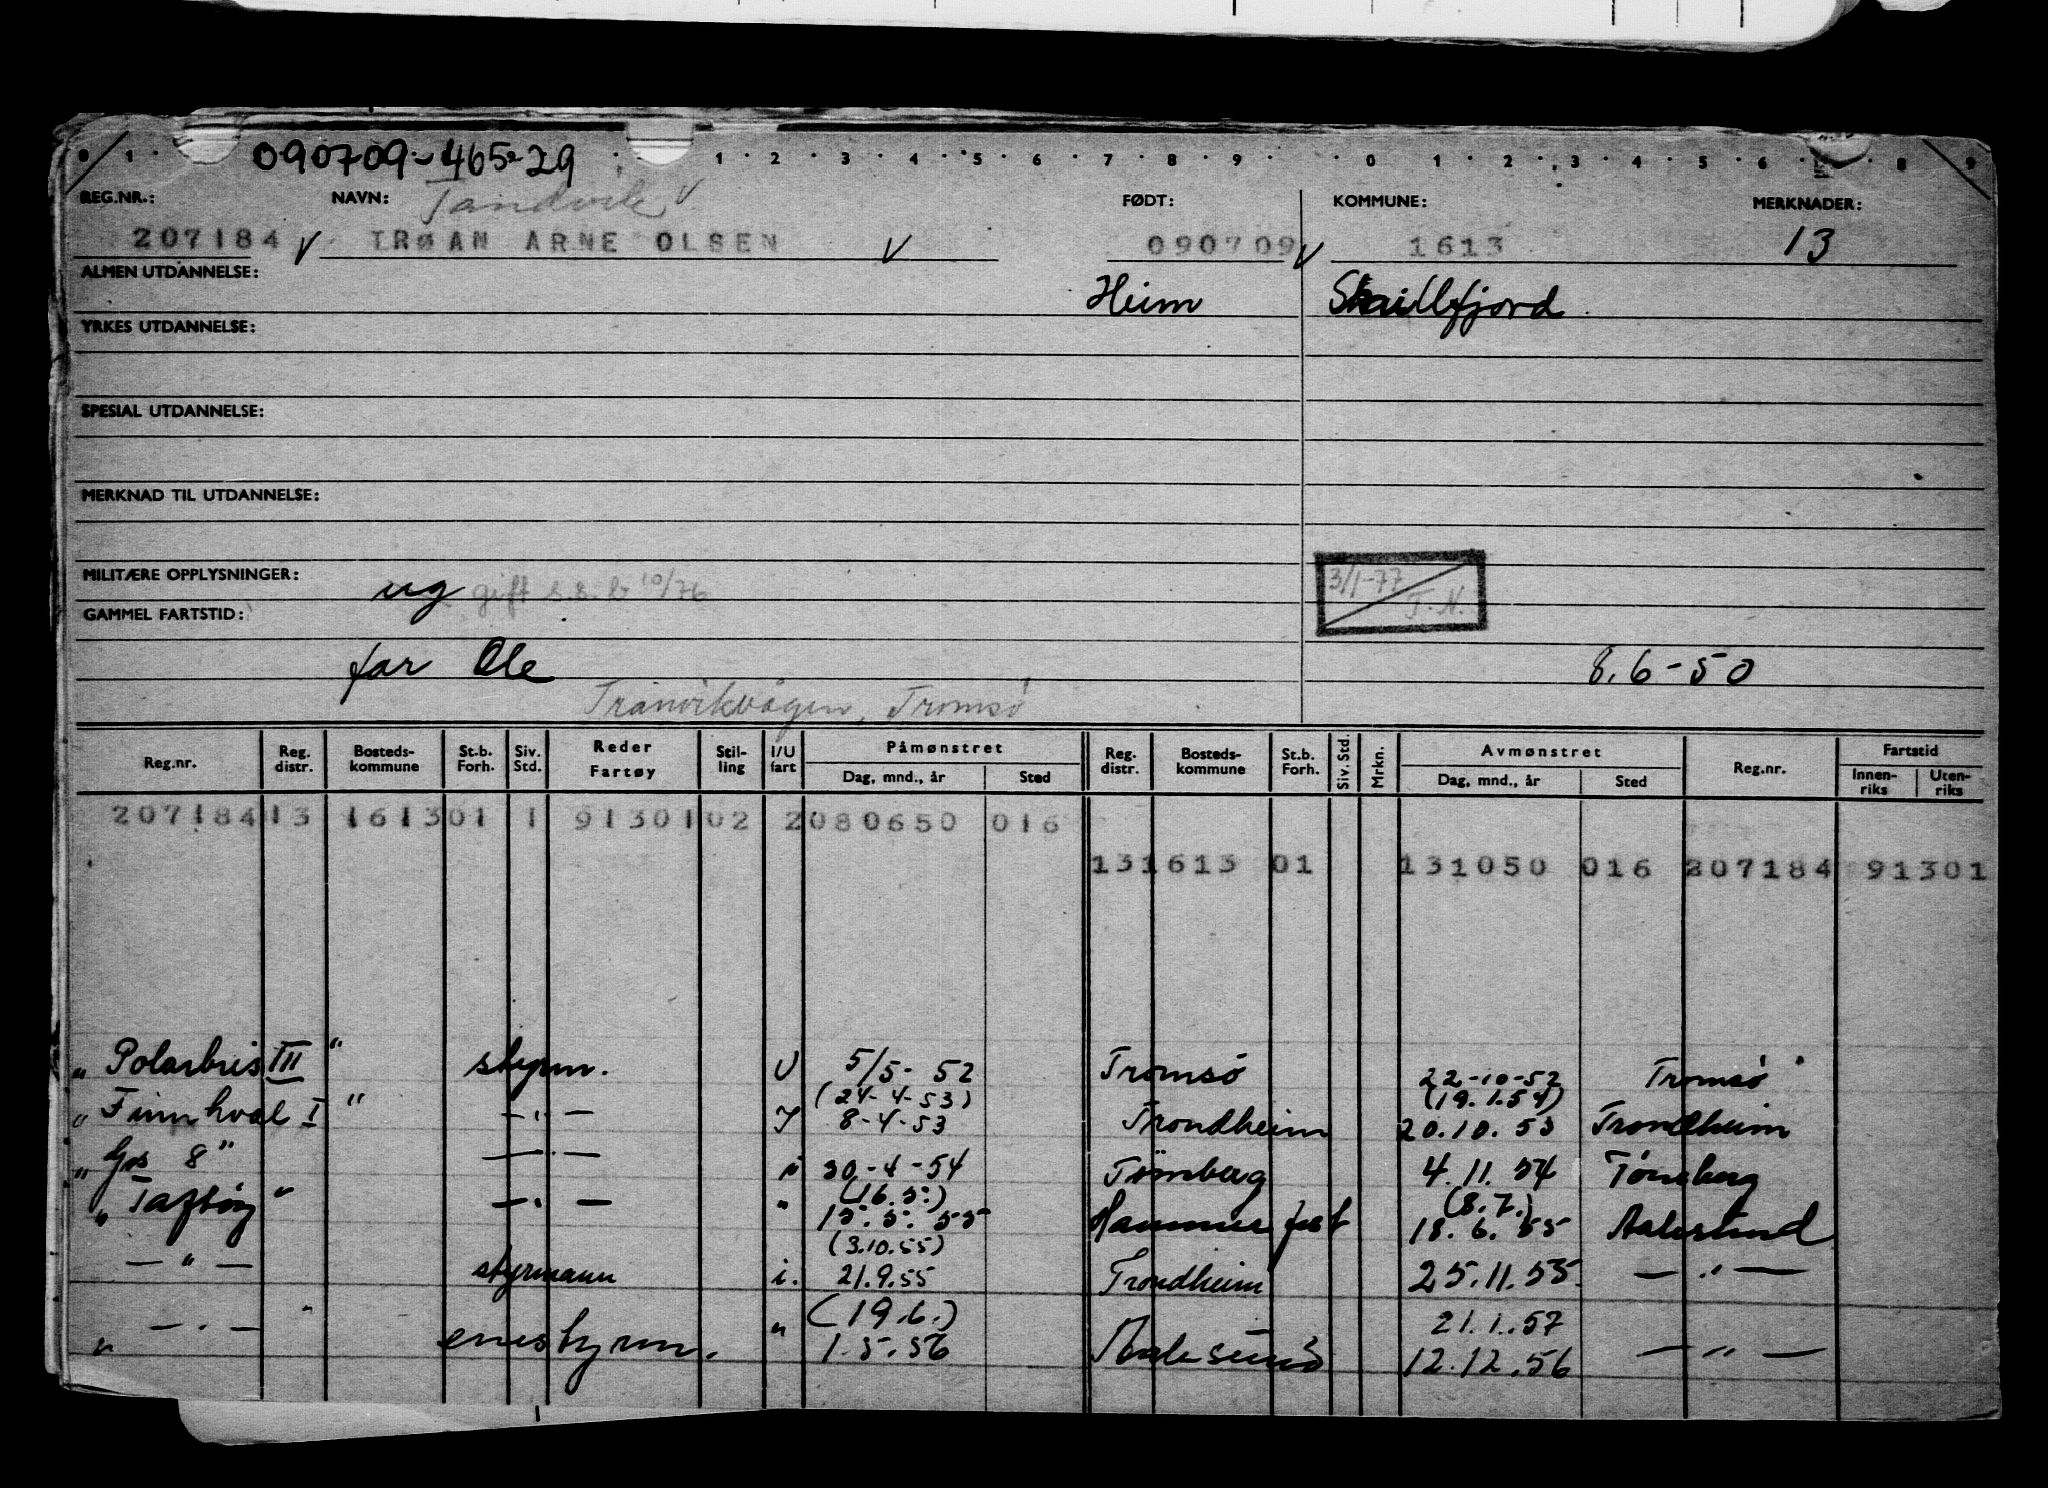 0 1 1 2 3 4 5 6 7 8 9 0 1 2 3 4 5 6 8 9
090709-46529
REG.NR.: NAVN: Tandvik v FØDT: KOMMUNE: MERKNADER:
207184 V TRØAN ARNE OLSEN V 090709 V 1613 13
ALMEN UTDANNELSE: Heim Snillfjord
YRKES UTDANNELSE:
SPESIAL UTDANNELSE:
MERKNAD TIL UTDANNELSE:
MILITÆRE OPPLYSNINGER: ug gift s.s.b 10/76 3/1-77 T.N.
GAMMEL FARTSTID:
far Ole 8.6-50
Tranvikvågen, Tromsø
Reg.nr. Reg. distr. Bosteds-kommune St.b. Forh. Siv. Std. Reder Fartøy Stil-ling I/U fart Påmønstret Dag, mnd., år Sted Reg. distr. Bosteds-kommune St.b. Forh. Siv. Std. Mrkn. Avmønstret Dag, mnd., år Sted Reg.nr. Fartstid Innen-riks Uten-riks
207184 13 1613 01 1 91301 02 2 080650 016
13 1613 01 131050 016 207184 91301
" Polarbris III " styrm. U 5/5-52 Tromsø 22-10-52 Tromsø
(24-4-53) (19.1.54)
" Finnhval I " — " — I 8-4-53 Trondheim 20.10.53 Trondheim
" Gos 8 " — " — i 30-4-54 Tönsberg 4.11.54 Tønsberg
(16.5.) (8.7.)
" Taftøy " — " — " 15.5.55 Hammerfest 18.6.55 Aalesund
(3.10.55)
— " — styrmann i. 21.9.55 Trondheim 25.11.55 — " —
(19.6.) 21.1.57
" — " — " enestyrm. " 1.5.56 Aalesund 12.12.56 — " —